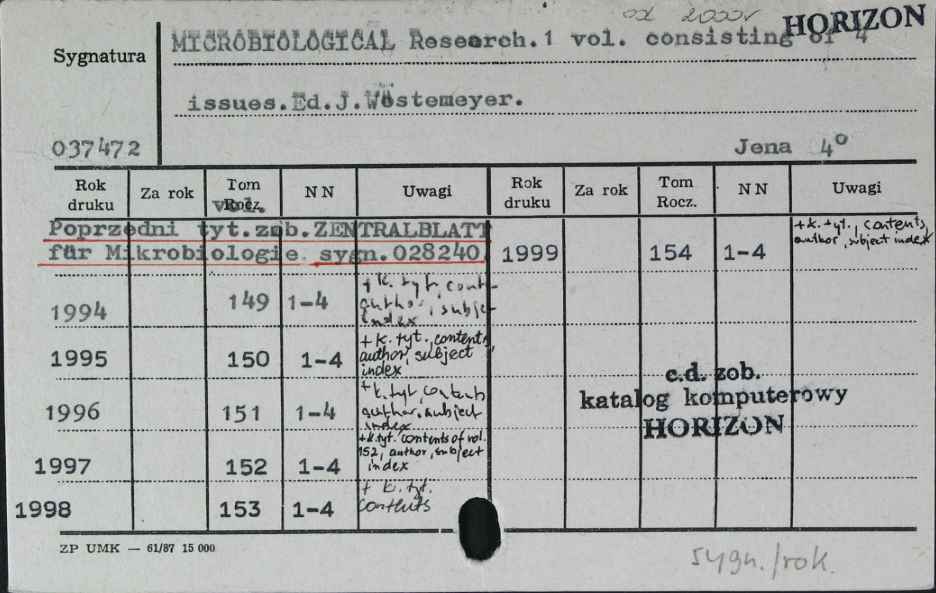 od 2000r HORIZON
Sygnatura
MICROBIOLOGICAL Research.1 vol. consisting of 4
issues.Ed.J.Wöstemeyer.
037472
Jena 4°
Rok druku Za rok Tom Rocz. vol. N N Uwagi Rok druku Za rok Tom Rocz. N N Uwagi
Poprzedni tyt.zob.ZENTRALBLATT
für Mikrobiologie sygn.028240
1999 154 1-4 +k.tyt., contents, author, subject index
1994 149 1-4 +k.tyt, cont- author, subje- index
1995 150 1-4 +k.tyt., contents, author, subject index
1996 151 1-4 +k.tyt, contents author, subject index
1997 152 1-4 +k.tyt. contents of vol. 152, author, subject index
1998 153 1-4 + k.tyt. contents
c.d. zob.
katalog komputerowy
HORIZON
ZP UMK — 61/87 15 000
sygn./rok.